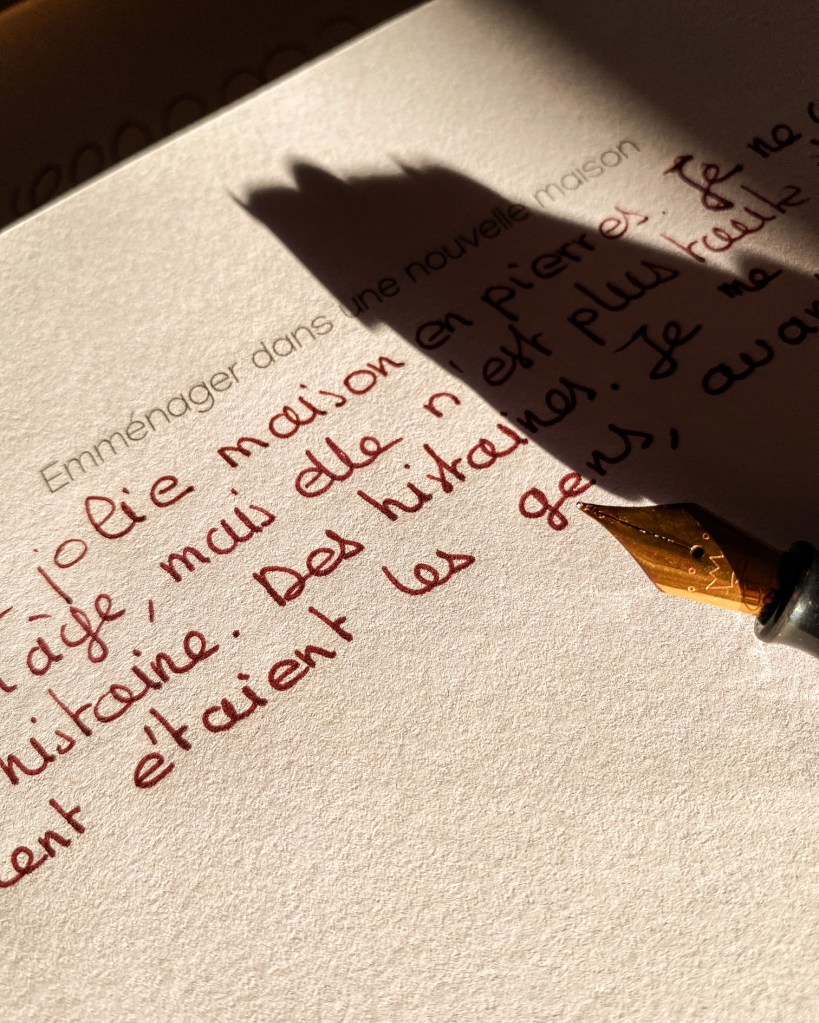 Emménager dans une nouvelle maison
jolie maison en pierres. Je ne
âge, mais elle n'est plus toute
histoire. Des histoires. Je me
étaient les gens, avan